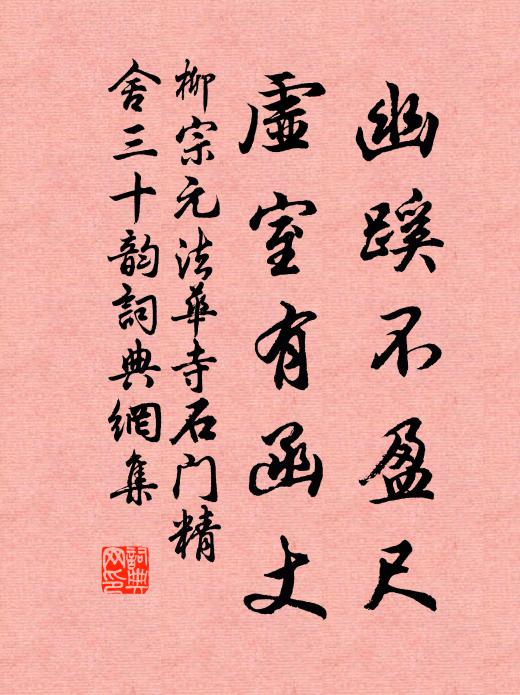 幽蹊不盈尺
虛室有函丈
柳宗元法華寺石门精
舍三十韵詞典網集
詞典网印